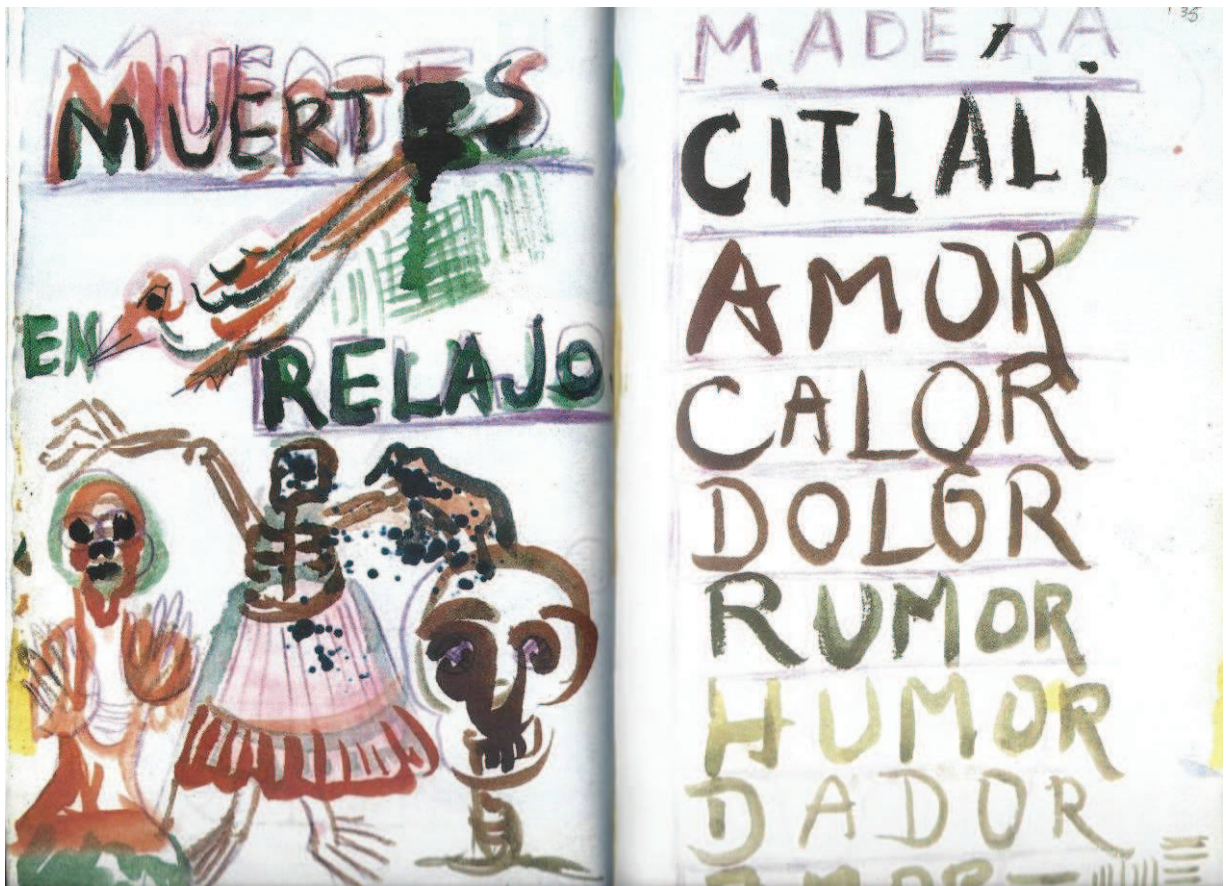 MUERTES
EN
RELAJO
35
MADERA
CITLALI
AMOR
CALOR
DOLOR
RUMOR
HUMOR
DADOR
AMOR